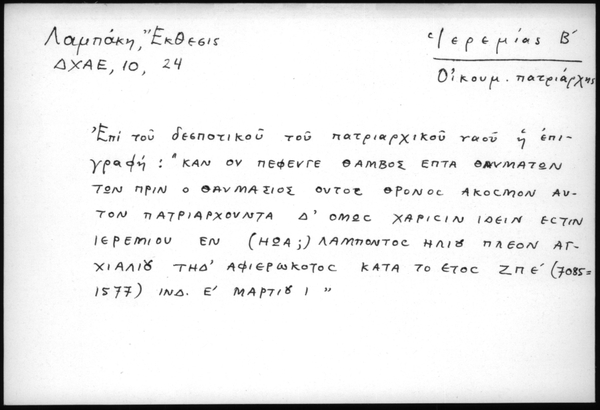 Λαμπάκη, "Ἔκθεσις
ΔΧΑΕ, 10, 24
Ἱερεμίας Β΄
Οἰκουμ. πατριάρχης
Ἐπί τοῦ δεσποτικοῦ τοῦ πατριαρχικοῦ ναοῦ ἡ ἐπι-
γραφή: "ΚΑΝ ΟΥ ΠΕΦΕΥΓΕ ΘΑΜΒΟΣ ΕΠΤΑ ΘΑΥΜΑΤΩΝ
ΤΩΝ ΠΡΙΝ Ο ΘΑΥΜΑΣΙΟΣ ΟΥΤΟΣ ΘΡΟΝΟΣ ΑΚΟCΜΟΝ ΑΥ-
ΤΟΝ ΠΑΤΡΙΑΡΧΟΥΝΤΑ Δ' ΟΜΩC ΧΑΡΙCΙΝ ΙΔΕΙΝ ΕCΤΙΝ
ΙΕΡΕΜΙΟΥ ΕΝ (ΗΩΑ;) ΛΑΜΠΟΝΤΟC ΗΛΙΟΥ ΠΛΕΟΝ ΑΓ-
ΧΙΑΛΙΟΥ ΤΗΔ' ΑΦΙΕΡΩΚΟΤΟC ΚΑΤΑ ΤΟ ΕΤΟC ΖΠΕ΄ (7085=
1577) ΙΝΔ. Ε΄ ΜΑΡΤΙΟΥ Ι "